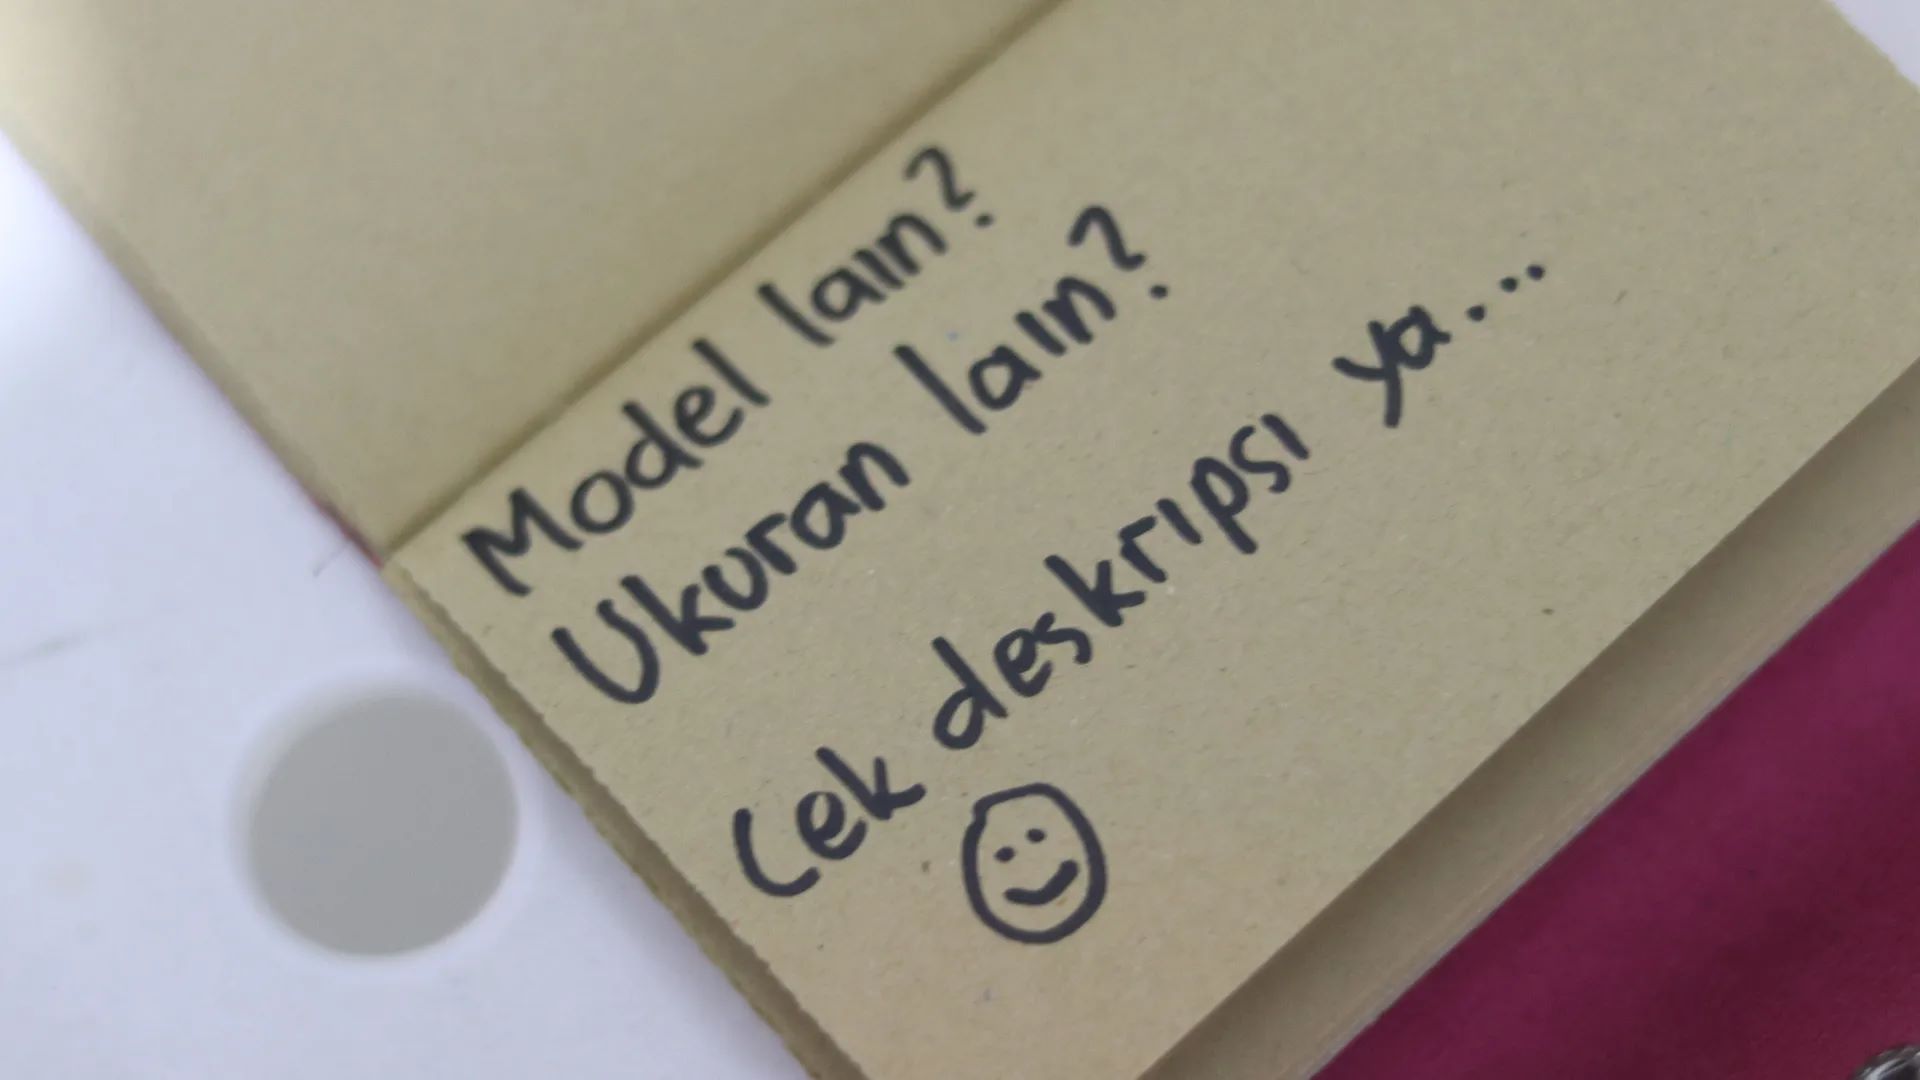 Model lain?
Ukuran lain?
Cek deskripsi ya...